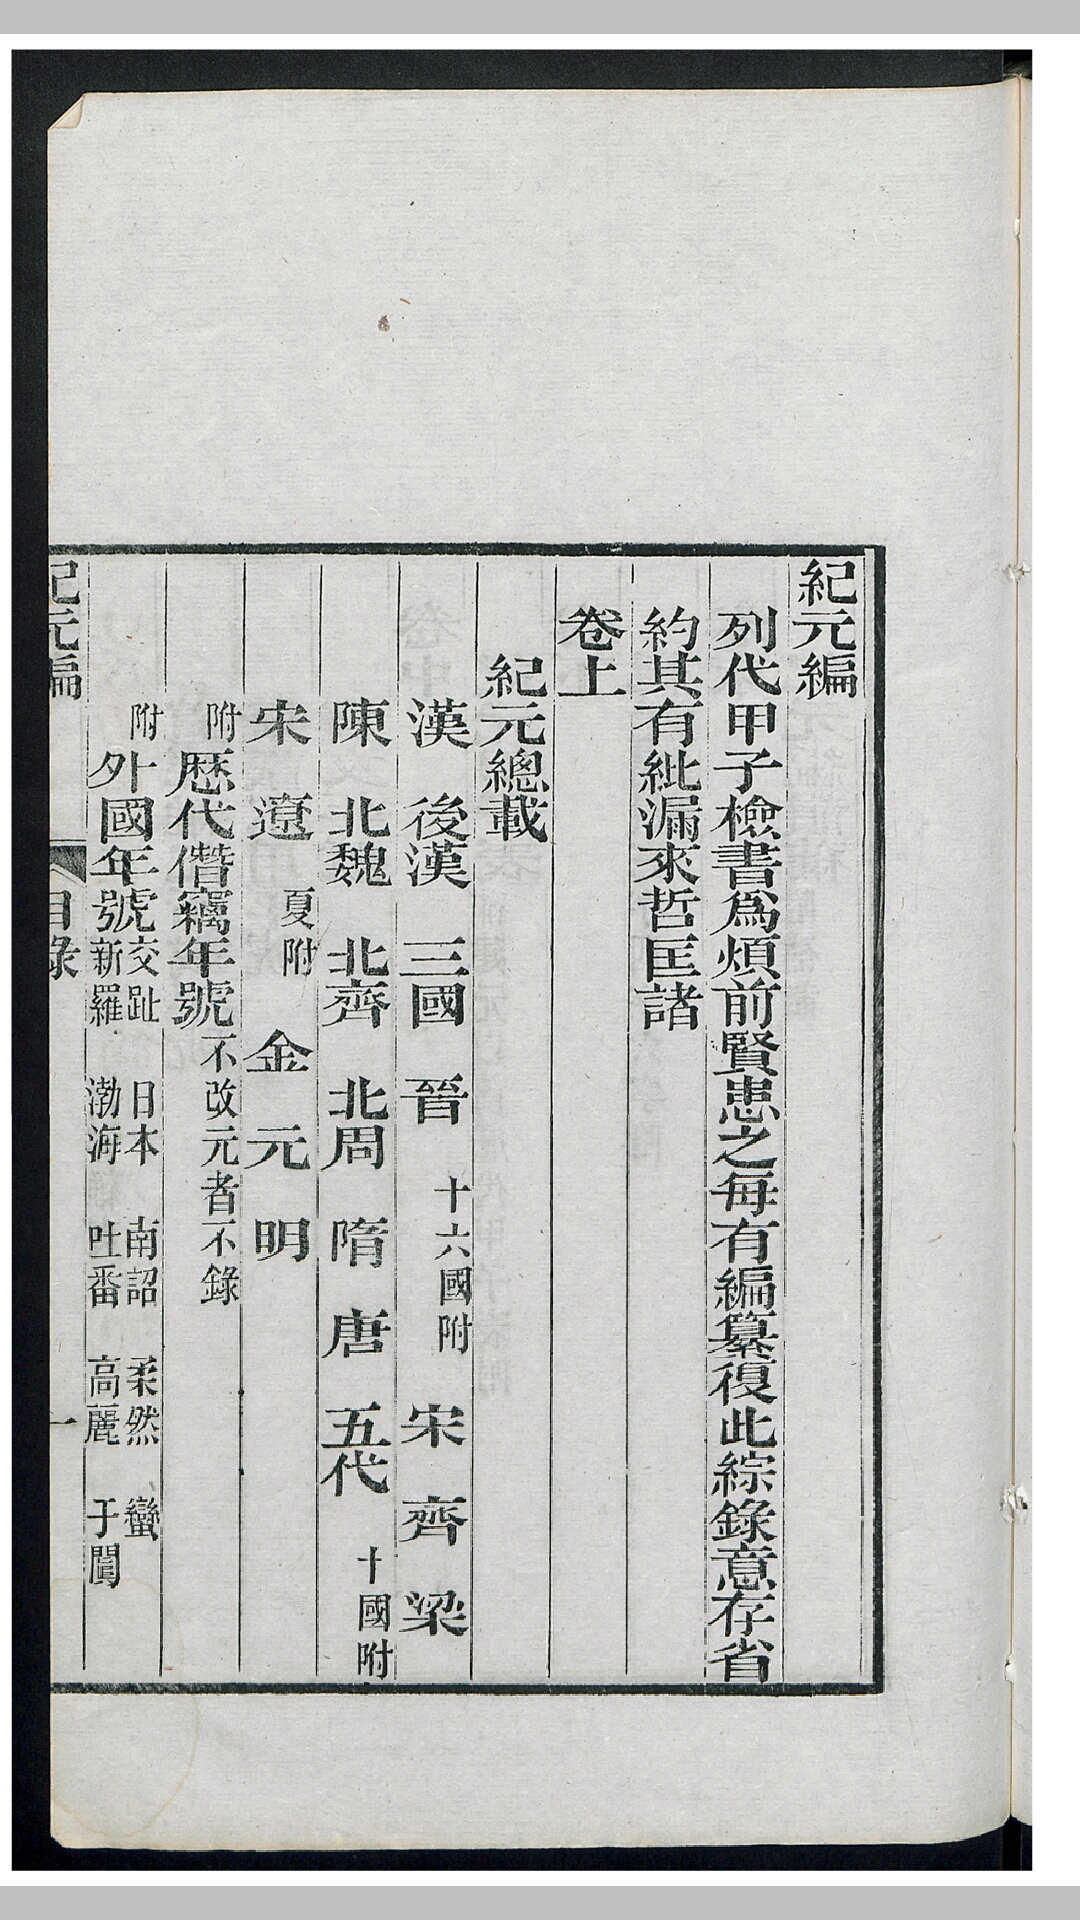 紀元編
列代甲子檢書爲煩前賢患之每有編纂復此綜錄意存省
約其有紕漏來哲匡諸
卷上
紀元總載
漢 後漢 三國 晉 十六國附 宋 齊 梁
陳 北魏 北齊 北周 隋 唐 五代 十國附
宋 遼 夏附 金 元 明
附歷代僭竊年號 不改元者不錄
附外國年號 交趾 日本 南詔 柔然 蠻
新羅 渤海 吐番 高麗 于闐
紀元編 目錄 一